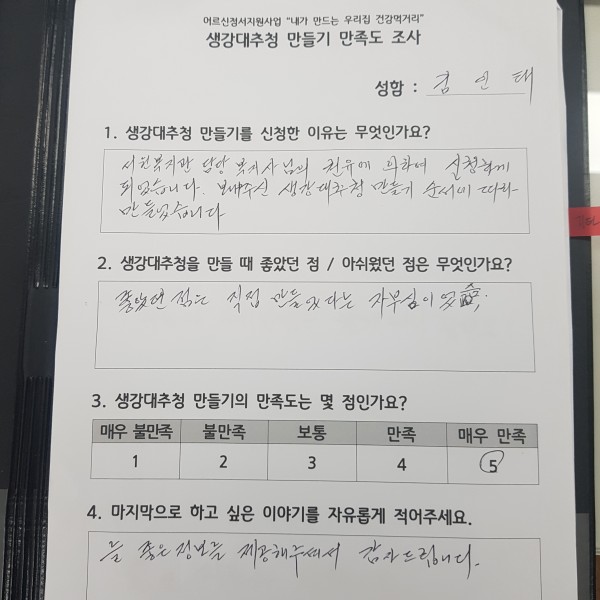 어르신정서지원사업 "내가 만드는 우리집 건강먹거리"
생강대추청 만들기 만족도 조사
성함 : 김 인 태
1. 생강대추청 만들기를 신청한 이유는 무엇인가요?
서원복지관 담당 복지사님의 권유에 의하여 신청하게
되었습니다. 보내주신 생강대추청 만들기 순서에 따라
만들었습니다
2. 생강대추청을 만들 때 좋았던 점 / 아쉬웠던 점은 무엇인가요?
좋았던 점은 직접 만들었다는 자부심이
3. 생강대추청 만들기의 만족도는 몇 점인가요?
매우 불만족 불만족 보통 만족 매우 만족
1 2 3 4 5
4. 마지막으로 하고 싶은 이야기를 자유롭게 적어주세요.
늘 좋은 정보를 제공해주셔서 감사드립니다.